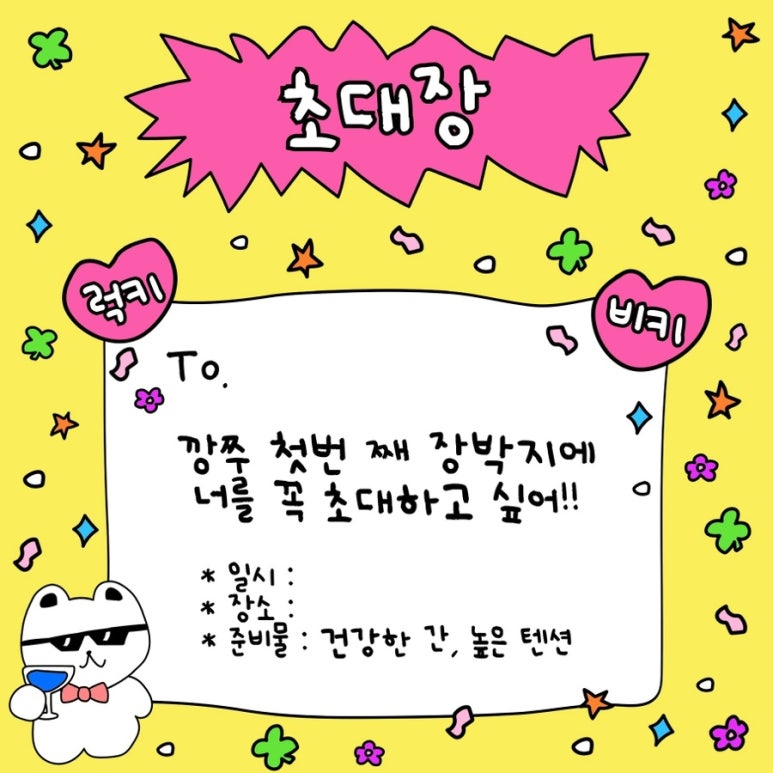 초대장
럭키
비키
To.
깡쭈 첫번 째 장박지에
너를 꼭 초대하고 싶어!!
* 일시 :
* 장소 :
* 준비물 : 건강한 간, 높은 텐션